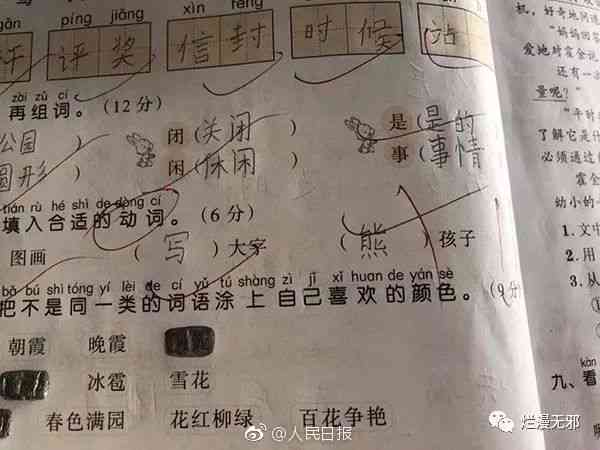 gǎn píng jiǎng xìn fēng
评 奖 信 封 时 候 站
zài zǔ cí
再组词。(12分)
公园 闭(关闭) 是(是的)
圆形) 闲(休闲) 事(事情)
tián rù hé shì de dòng cí
填入合适的动词。(6分)
图画 (写)大字 (熊)孩子
bǎ bú shì tóng yí lèi de cí yǔ tú shàng zì jǐ xǐ huan de yán sè
把不是同一类的词语涂上自己喜欢的颜色。(9分)
朝霞 晚霞
冰雹 雪花
春色满园 花红柳绿 百花争艳
机,好奇地问道
“妈妈回答
爱地对霍金说
还有一
量呢?”
“平时
了解它是什
必须通过
霍金
幼小的
1.文中
2.用
3.从
kàn
九、看
@人民日报
烂漫无邪